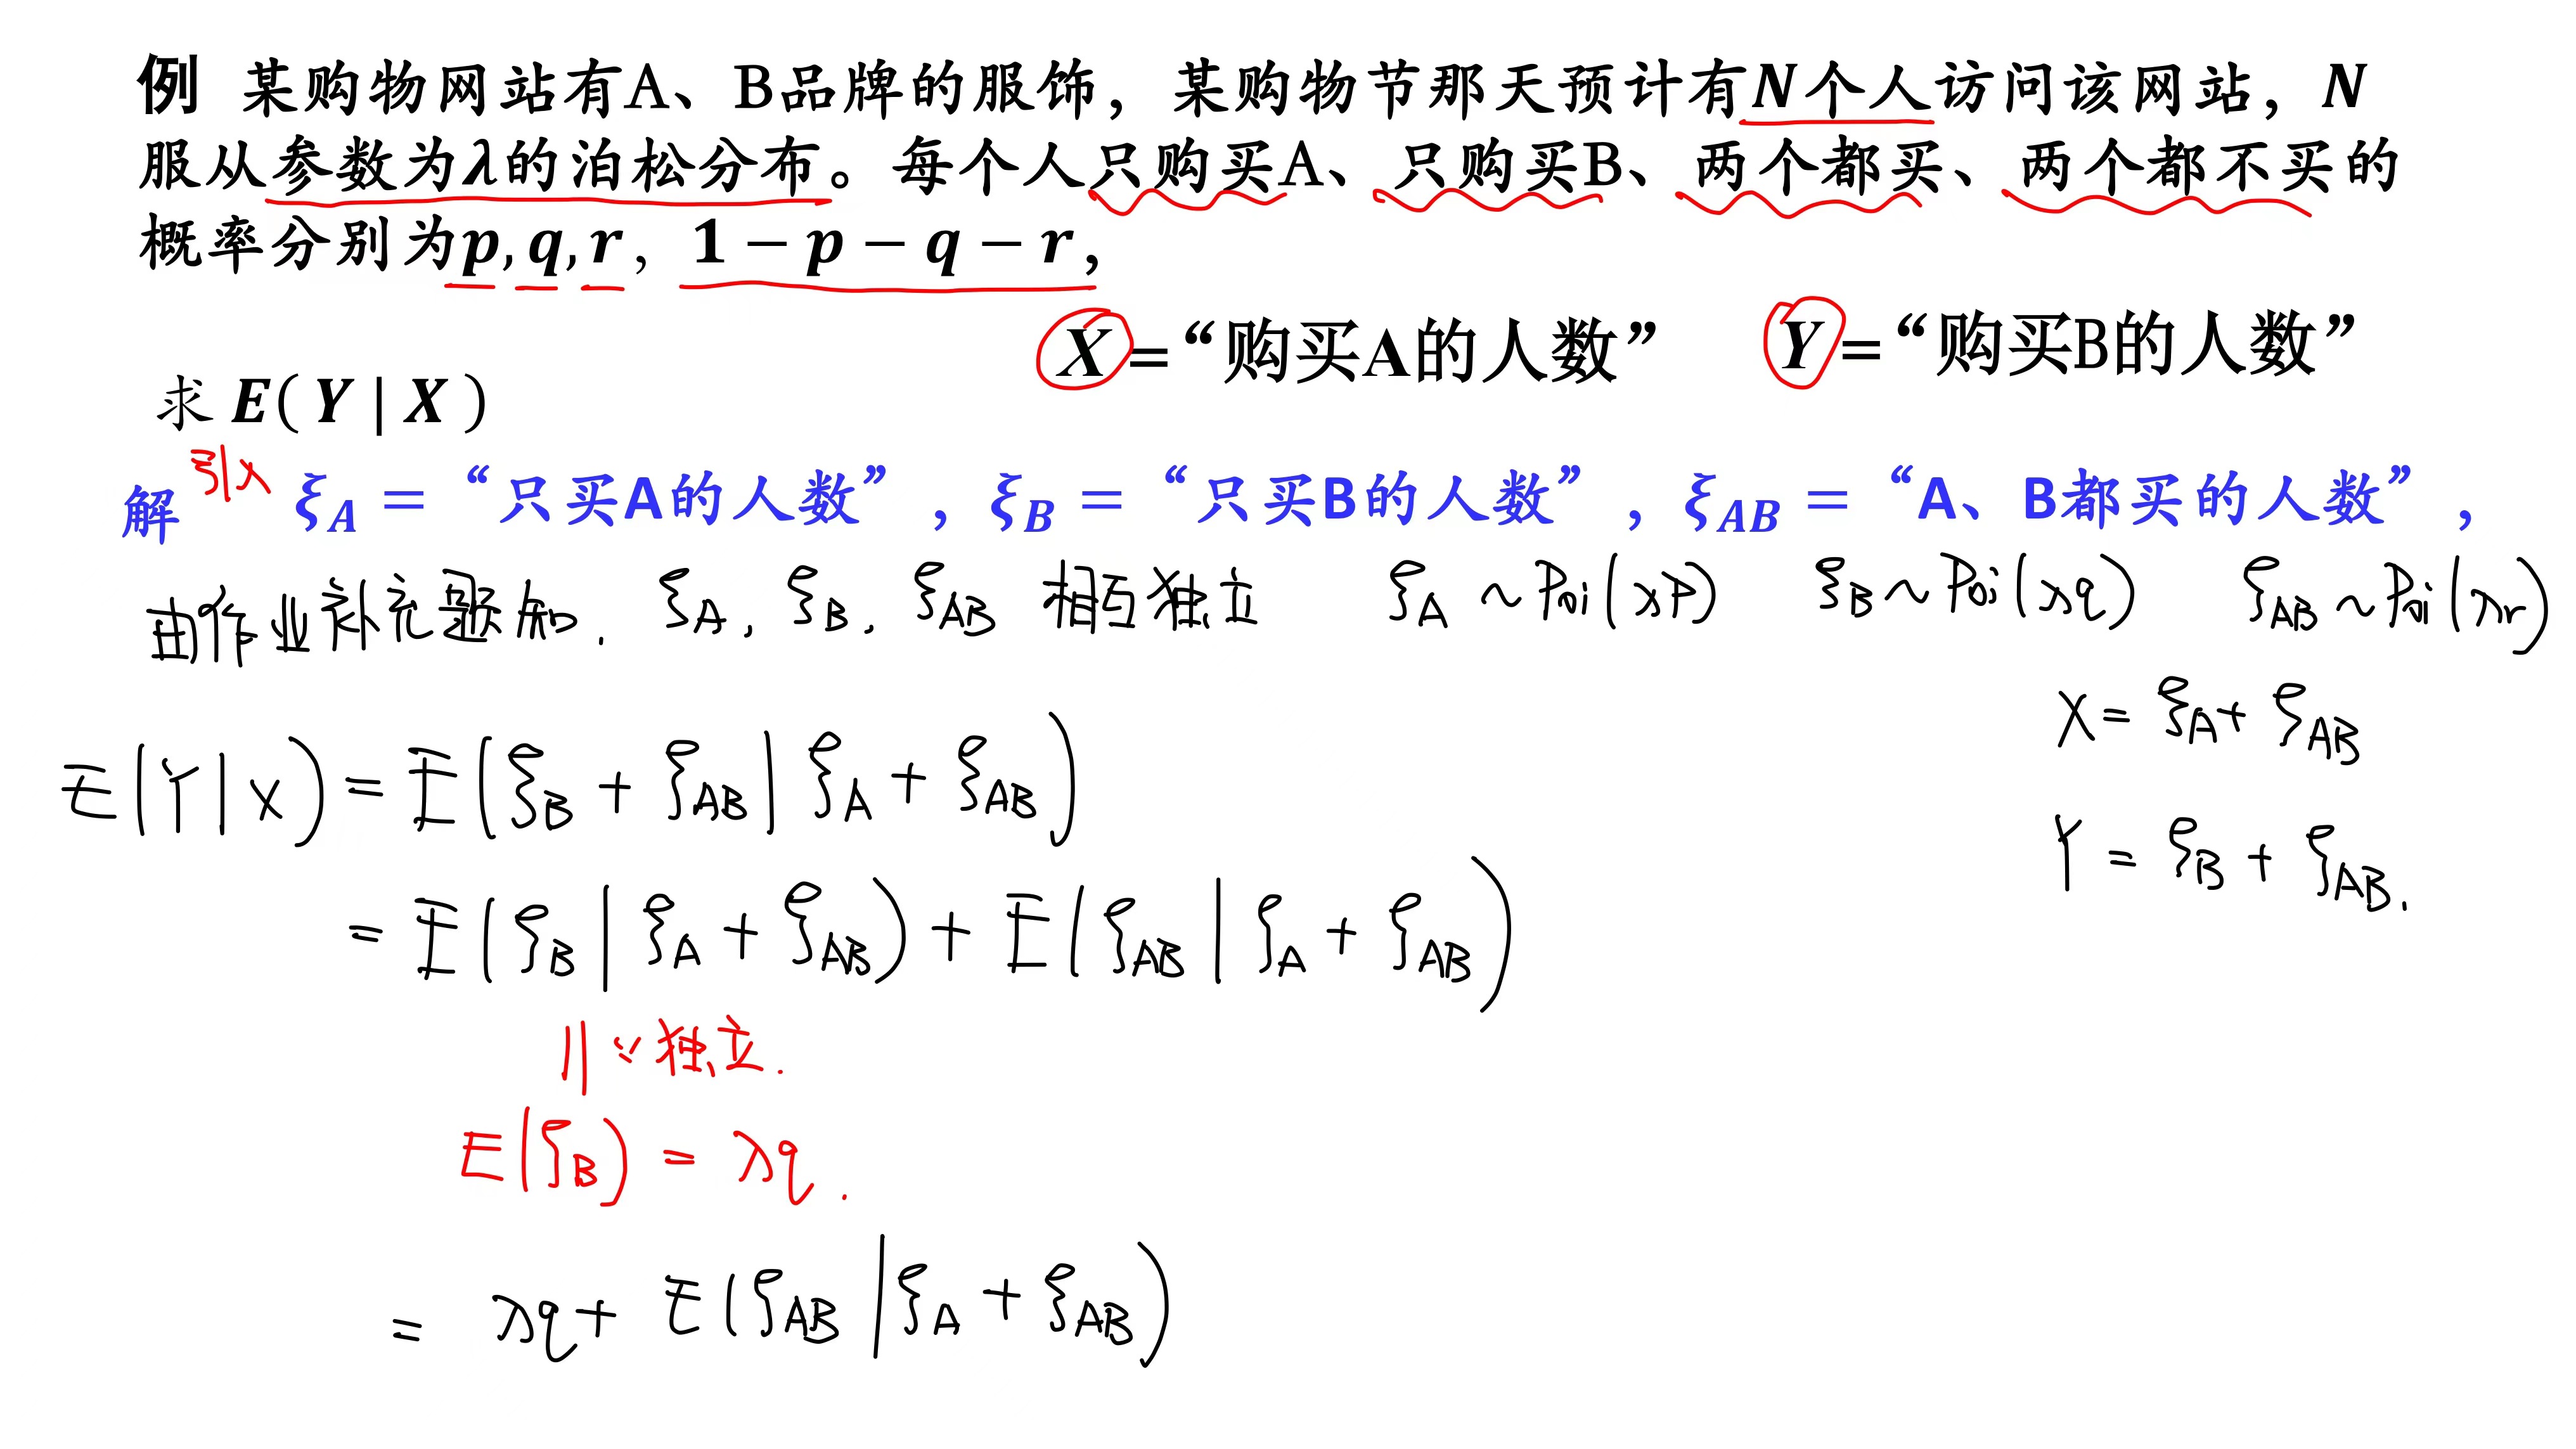 例 某购物网站有A、B品牌的服饰，某购物节那天预计有N个人访问该网站，N
服从参数为λ的泊松分布。每个人只购买A、只购买B、两个都买、两个都不买的
概率分别为p, q, r，1 − p − q − r,
X =“购买A的人数” Y =“购买B的人数”
求 E( Y | X )
解 引入 ξ_A = “只买A的人数”，ξ_B = “只买B的人数”，ξ_AB = “A、B都买的人数”，
由作业补充题知, ξ_A, ξ_B, ξ_AB 相互独立 ξ_A ~ Poi(λp) ξ_B ~ Poi(λq) ξ_AB ~ Poi(λr)
X = ξ_A + ξ_AB
E(Y|X) = E(ξ_B + ξ_AB | ξ_A + ξ_AB)
Y = ξ_B + ξ_AB.
= E(ξ_B | ξ_A + ξ_AB) + E(ξ_AB | ξ_A + ξ_AB)
|| ∵ 独立.
E(ξ_B) = λq.
= λq + E(ξ_AB | ξ_A + ξ_AB)